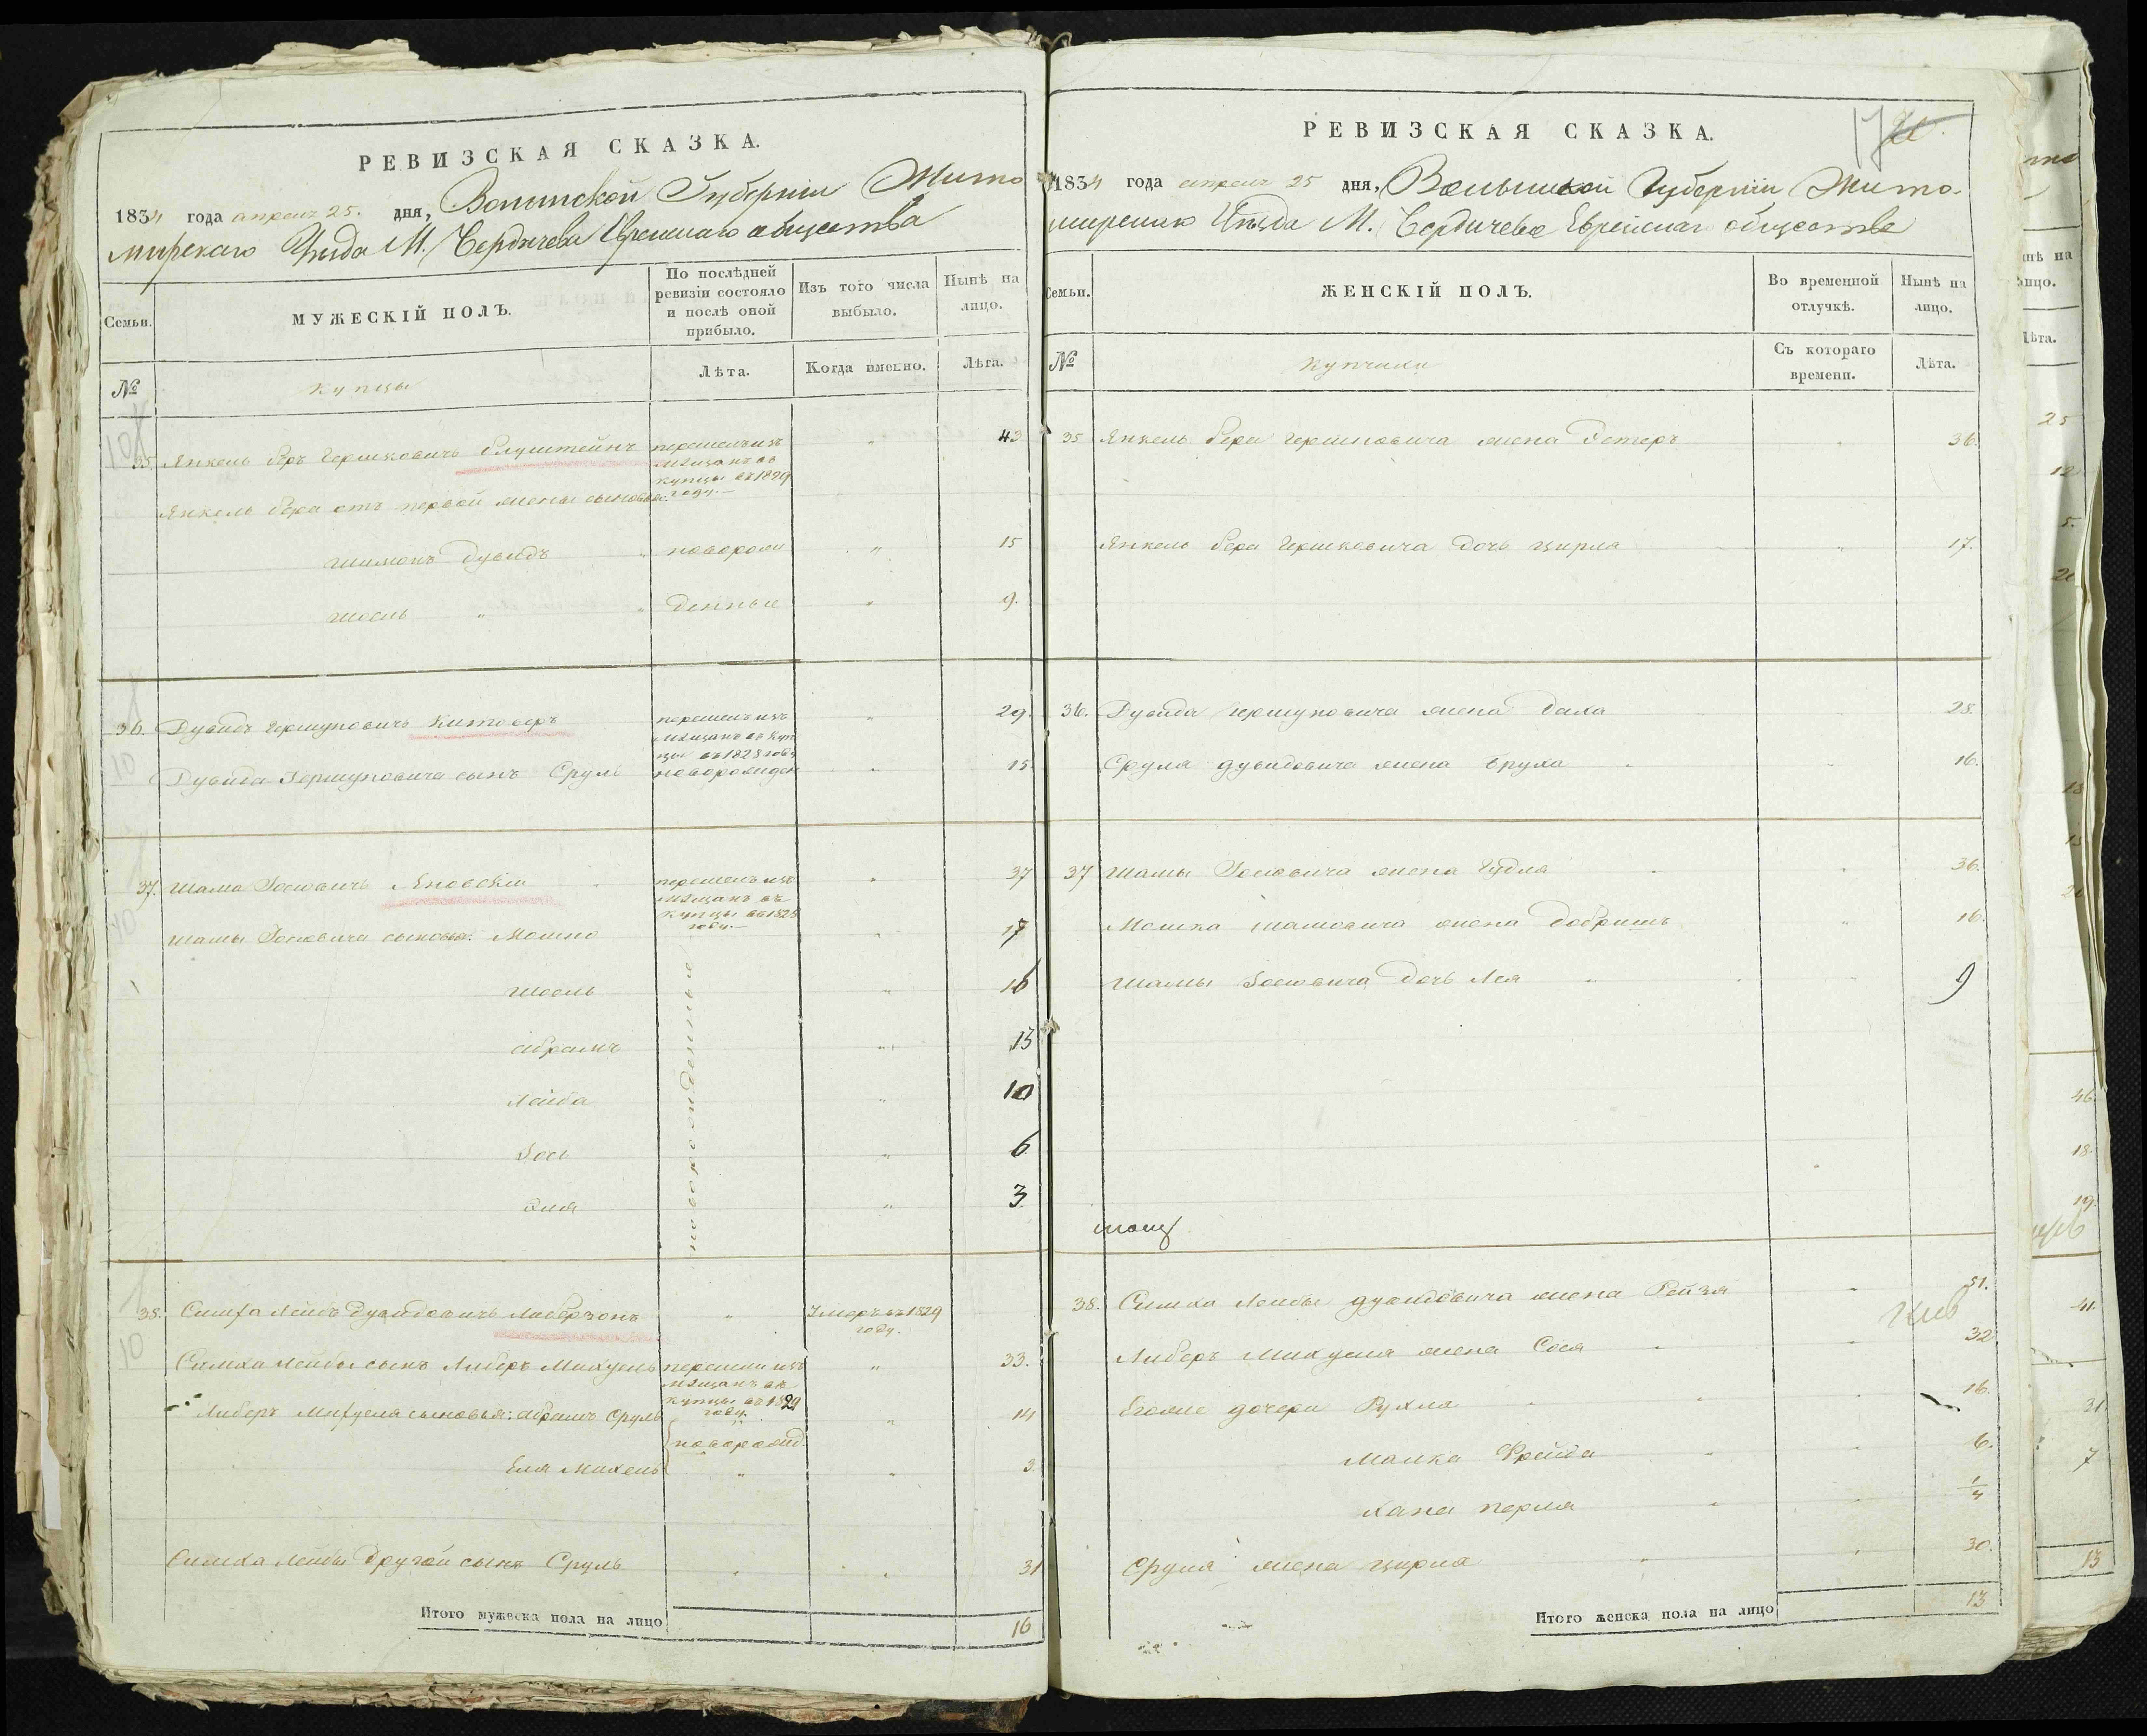 РЕВИЗСКАЯ СКАЗКА.
1834 года апреля 25. дня, Волынской Губерніи Жито
мирскаго Уѣзда М. Бердичева Еврейскаго общества
Семьи.
МУЖЕСКІЙ ПОЛЪ.
По послѣдней ревизіи состояло и послѣ оной прибыло.
Изъ того числа выбыло.
Нынѣ на лицо.
№
Купцы
Лѣта.
Когда именно.
Лѣта.
35. Янкель Беръ Гершковичъ Блуштейнъ перешелъ изъ мѣщанъ въ купцы въ 1829 году.— " 43.
Янкель Бера отъ первой жены сыновья:
Шимонъ Дувидъ " новорож " 15
Шоель " " денные " 9.
36. Дувидъ Гершуновичъ Китоверъ перешелъ изъ мѣщанъ въ куп цы въ 1828 году " 29.
Дувида Гершуновича сынъ Сруль новорожден " 15.
37. Шама Іосіовичъ Яновскій перешелъ изъ мѣщанъ въ купцы въ 1828 году.— " 37
Шамы Іосіовича сыновья: Мошко " 17
Шоель " 16
Абрамъ " 13
Лейба " 10
Іось " 6
Эля " 3
новорожденные
38. Симха Лейбъ Дувидовичъ Либерзонъ " Умеръ въ 1829 году.
Симха Лейбы сынъ Либеръ Михуель перешли изъ мѣщанъ въ купцы въ 1829 году. " 33.
Либеръ Михуеля сыновья: Абрамъ Сруль новорожд. " 14
Еля Михель " " 3
Симха Лейбы другой сынъ Сруль " " 31
Итого мужеска пола на лицо 16
РЕВИЗСКАЯ СКАЗКА.
17
1834 года апреля 25 дня, Волынской Губерніи Жито-
мирскаго Уѣзда М. Бердичева Еврейскаго общества
Семьи.
ЖЕНСКІЙ ПОЛЪ.
Во временной отлучкѣ.
Нынѣ на лицо.
№
Купчихи
Съ котораго времени.
Лѣта.
35 Янкель Бера Гершковича жена Эстеръ " 36.
Янкель Бера Гершковича дочь Цирля " 17.
36. Дувида Гершуновича жена Хаха 28.
Сруля Дувидовича жена Бруха " " 16.
37 Шамы Іосіовича жена Гудля " " 36.
Мошка Шамовича жена Добришъ " 16.
Шамы Іосіовича дочь Лея " " 9
38. Симха Лейбы Дувидовича жена Рейзя " 51.
Либеръ Михуеля жена Сося " " 32
Егоже дочери Рухля " 16.
Малка Фрейда " " 6.
Хана Перля " " 1/4
Сруля жена Цирля " " 30.
Итого женска пола на лицо 13